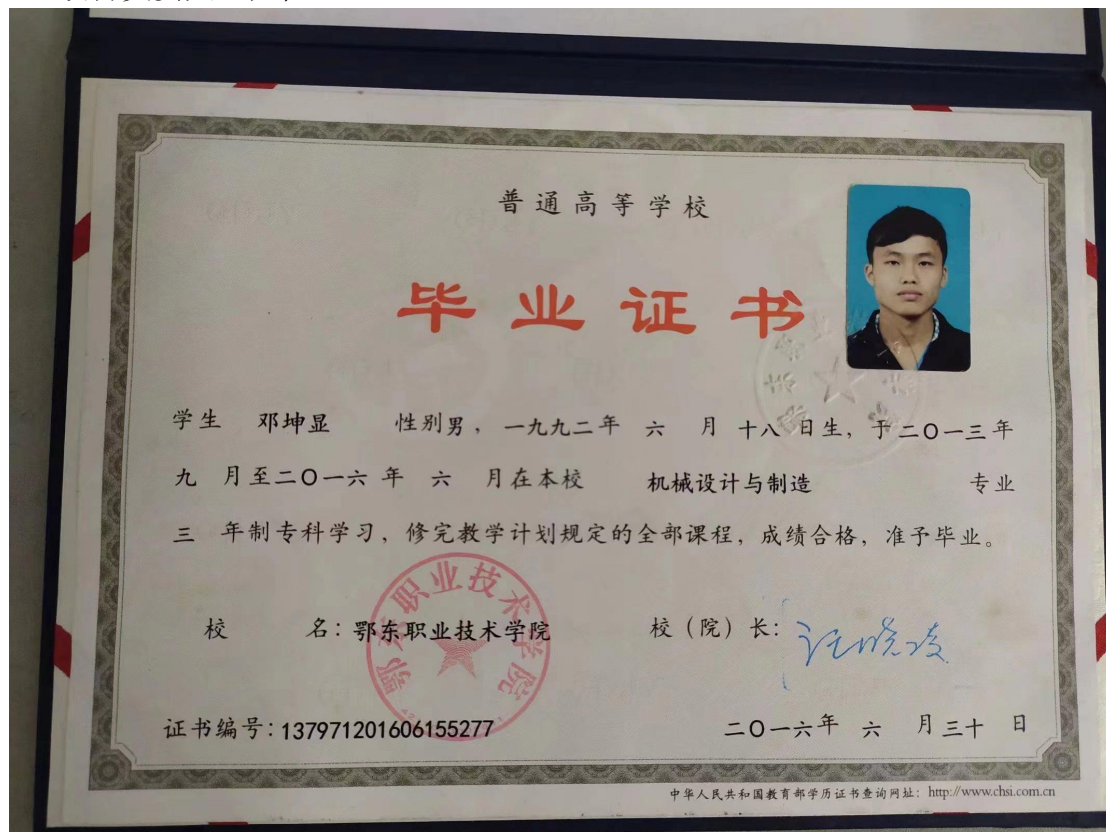 普通高等学校
毕业证书
学生 邓坤显 性别男，一九九二年 六 月 十八 日生，于二〇一三年
九 月至二〇一六 年 六 月在本校 机械设计与制造 专业
三 年制专科学习，修完教学计划规定的全部课程，成绩合格，准予毕业。
校 名：鄂东职业技术学院 校（院）长：
鄂东职业技术学院
证书编号：137971201606155277 二〇一六年 六 月三十 日
中华人民共和国教育部学历证书查询网址：http://www.chsi.com.cn